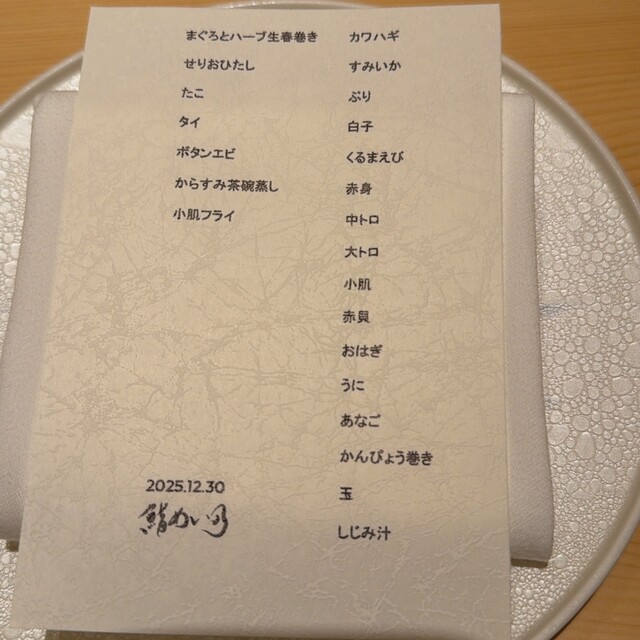 まぐろとハーブ生春巻き
せりおひたし
たこ
タイ
ボタンエビ
からすみ茶碗蒸し
小肌フライ
カワハギ
すみいか
ぶり
白子
くるまえび
赤身
中トロ
大トロ
小肌
赤貝
おはぎ
うに
あなご
かんぴょう巻き
玉
しじみ汁
2025.12.30